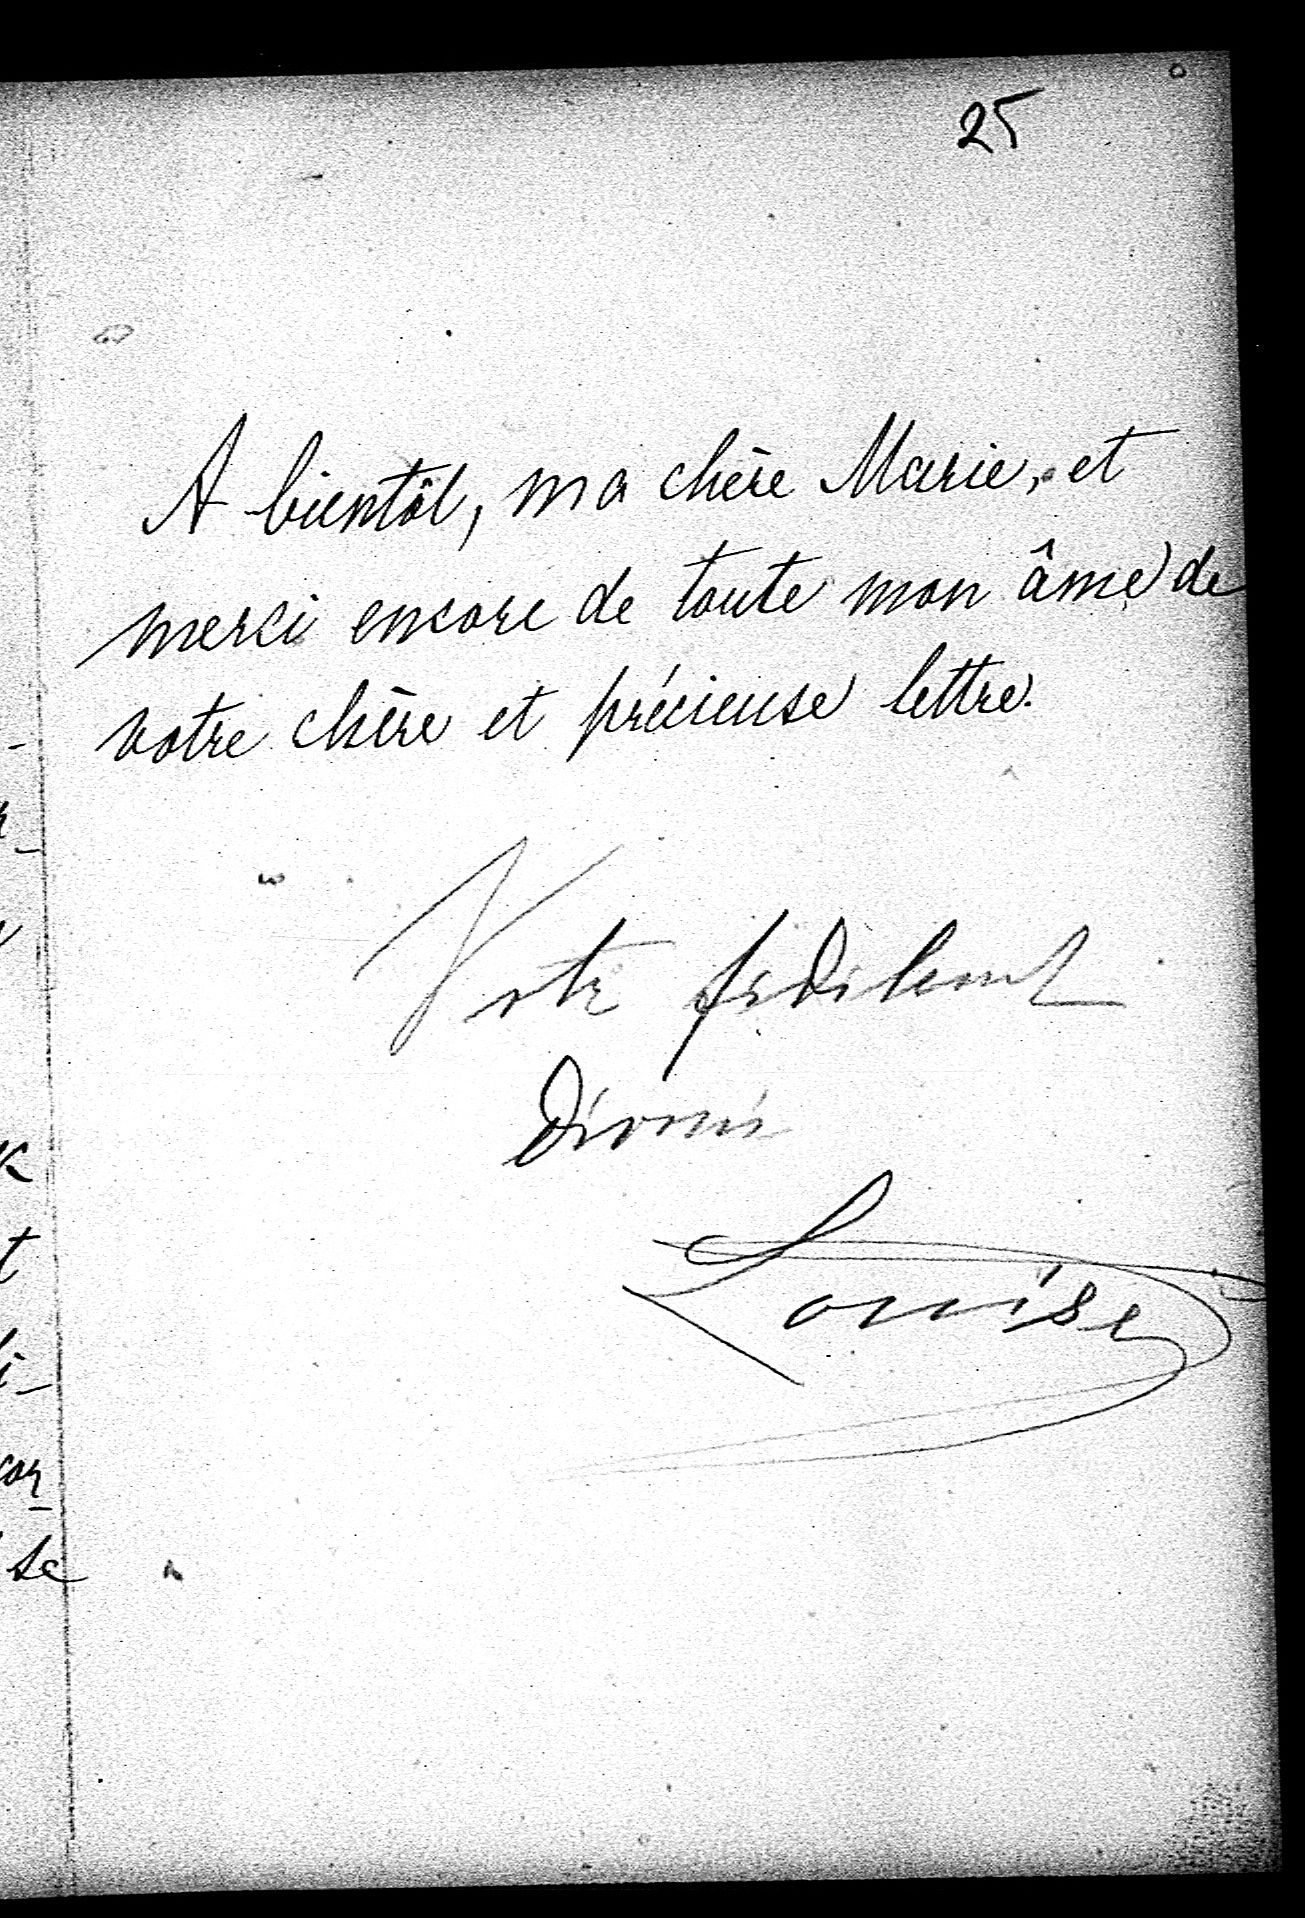 25
A bientôt, ma chère Marie, et
merci encore de toute mon âme de
votre chère et précieuse lettre.
Votre fidèlement
Dévouée
Louise